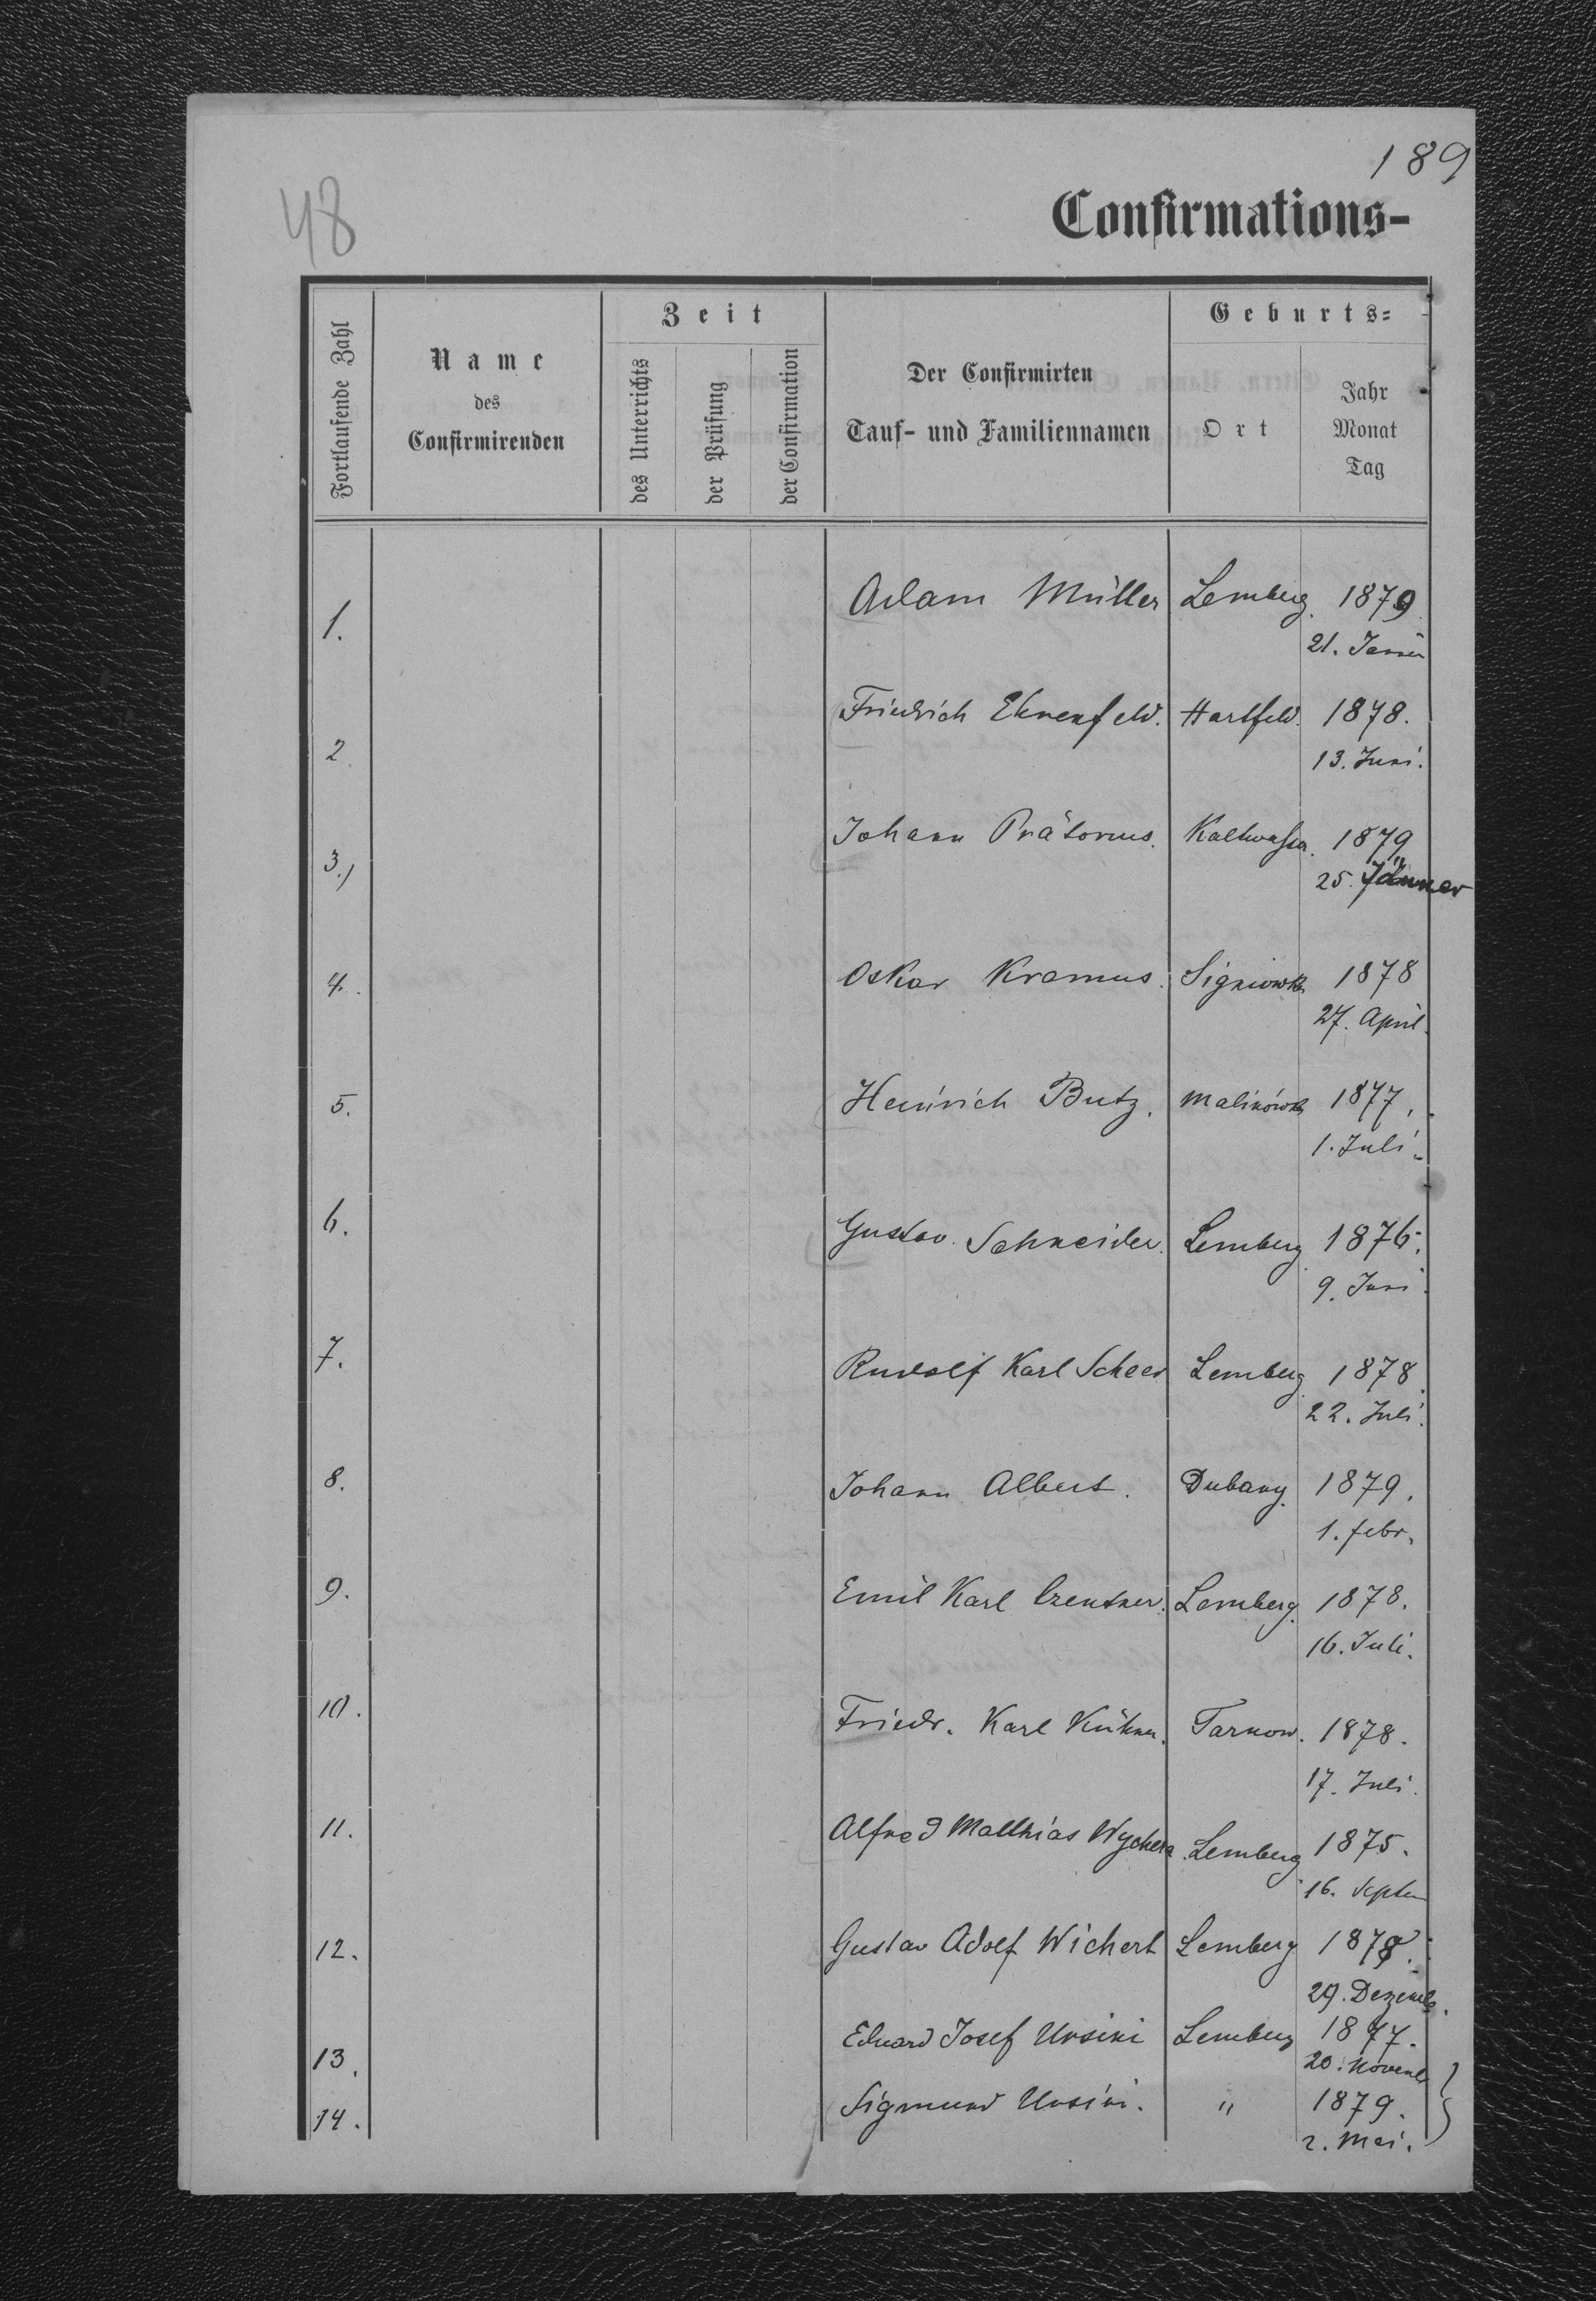 189
48
Confirmations-
Fortlaufende Zahl
Name
des
Confirmirenden
Zeit
des Unterrichts
der Prüfung
der Confirmation
Der Confirmirten
Tauf- und Familiennamen
Geburts-
Ort
Jahr
Monat
Tag
1. Adam Müller Lemberg. 1879
21. Janner
2. Friedrich Ehrenfeld. Hartfeld. 1878.
13. Juni.
3.) Johann Prätorius. Kaltwasser. 1879
25. Jänner
4. Oskar Kramus. 1878
27. April.
5. Heinrich Butz. 1877.
1. Juli.
6. Gustav Schneider. Lemberg. 1876.
9. Juni
7. Rudolf Karl Scheer Lemberg. 1878.
22. Juli.
8. Johann Albert. Dubany. 1879.
1. febr.
9. Emil Karl Lemberg. 1878.
16. Juli.
10. Friedr. Karl Kühner. Tarnow. 1878.
17. Juli.
11. Alfred Matthias Wychera Lemberg 1875.
16. Septem
12. Gustav Adolf Wichert Lemberg 1878.
29. Dezemb.
13. Eduard Josef Ursini Lemberg 1877.
20. Novemb
14. Sigmund Ursini. " 1879.
2. Mai.